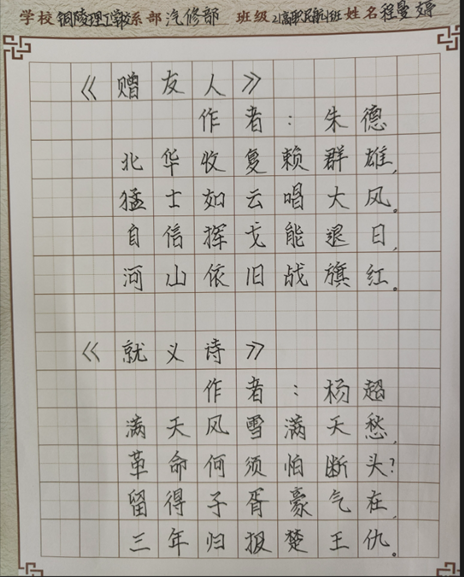 学校 铜陵理工学校 系部 汽修部 班级 21高职民航1班 姓名 程曼婷
《赠友人》
作者：朱德
北华收复赖群雄，
猛士如云唱大风。
自信挥戈能退日，
河山依旧战旗红。
《就义诗》
作者：杨超
满天风雪满天愁，
革命何须怕断头？
留得子胥豪气在，
三年归报楚王仇。